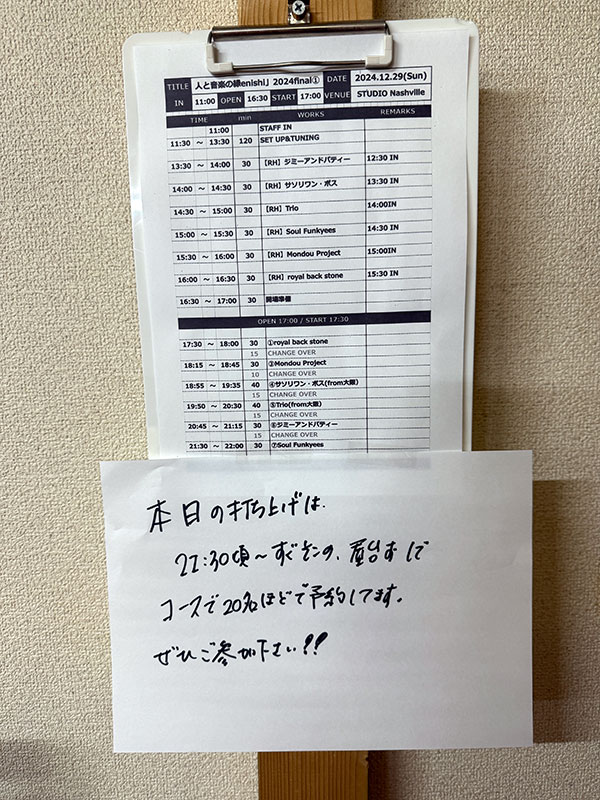 TITLE 人と音楽の縁enishi」2024final① DATE 2024.12.29(Sun)
IN 11:00 OPEN 16:30 START 17:00 VENUE STUDIO Nashville
TIME min WORKS REMARKS
11:00 STAFF IN
11:30 ～ 13:30 120 SET UP&TUNING
13:30 ～ 14:00 30 【RH】ジミーアンドパティー 12:30 IN
14:00 ～ 14:30 30 【RH】サソリワン・ボス 13:30 IN
14:30 ～ 15:00 30 【RH】Trio 14:00IN
15:00 ～ 15:30 30 【RH】Soul Funkyees 14:30 IN
15:30 ～ 16:00 30 【RH】Mondou Project 15:00IN
16:00 ～ 16:30 30 【RH】royal back stone 15:30 IN
16:30 ～ 17:00 30 開場準備
OPEN 17:00 / START 17:30
17:30 ～ 18:00 30 ①royal back stone
15 CHANGE OVER
18:15 ～ 18:45 30 ②Mondou Project
10 CHANGE OVER
18:55 ～ 19:35 40 ④サソリワン・ボス(from大阪)
15 CHANGE OVER
19:50 ～ 20:30 40 ⑤Trio(from大阪)
15 CHANGE OVER
20:45 ～ 21:15 30 ⑥ジミーアンドパティー
15 CHANGE OVER
21:30 ～ 22:00 30 ⑦Soul Funkyees
本日の打ち上げは
22:30頃～すぐそこの、屋台すしで
コースで20名ほどで予約してます。
ぜひご参加下さい!!